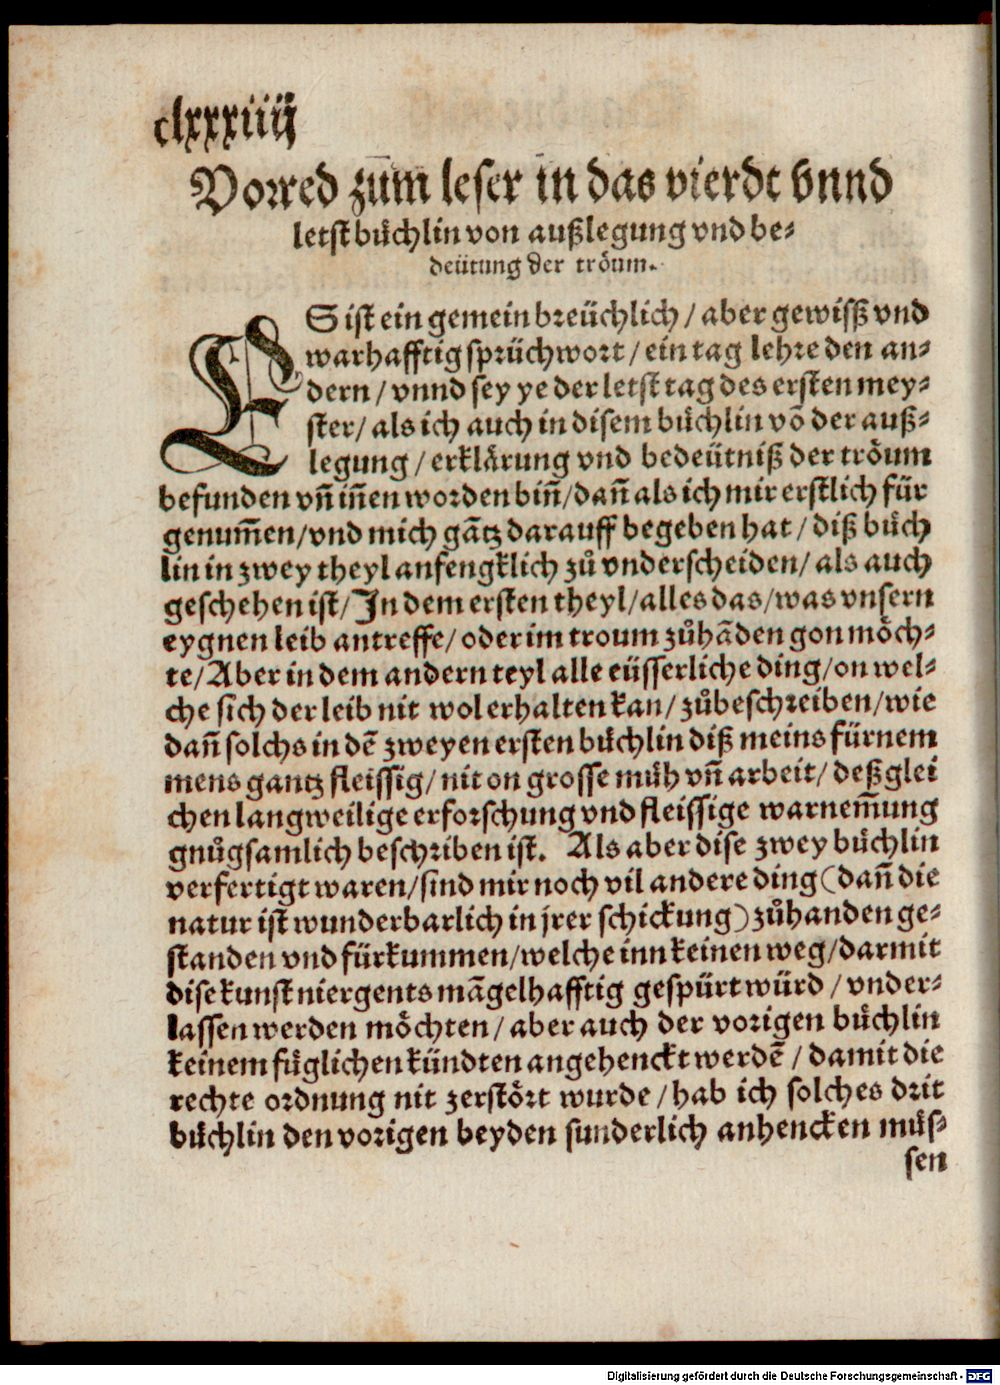 clxxxiiij
Vorred zum leser in das vierdt vnnd
letst bůchlin von außlegung vnd be⸗
deütung der tröum.
ES ist ein gemein breüchlich / aber gewisß vnd
warhafftig sprüchwort / ein tag lehre den an⸗
dern / vnnd sey ye der letst tag des ersten mey⸗
ster / als ich auch in disem bůchlin võ der auß⸗
legung / erklärung vnd bedeütniß der tröum
befunden vñ iñen worden biñ / dañ als ich mir erstlich für
genum̃en / vnd mich gãtz darauff begeben hat / diß bůch
lin in zwey theyl anfengklich zů vnderscheiden / als auch
geschehen ist / In dem ersten theyl / alles das / was vnsern
eygnen leib antreffe / oder im troum zůhãden gon möch⸗
te / Aber in dem andern teyl alle eüsserliche ding / on wel⸗
che sich der leib nit wol erhalten kan / zůbeschreiben / wie
dañ solchs in dẽ zweyen ersten bůchlin diß meins fürnem
mens gantz fleissig / nit on grosse müh vñ arbeit / deßglei
chen langweilige erforschung vnd fleissige warnem̃ung
gnůgsamlich beschriben ist. Als aber dise zwey bůchlin
verfertigt waren / sind mir noch vil andere ding (dañ die
natur ist wunderbarlich in jrer schickung) zůhanden ge⸗
standen vnd fürkummen / welche inn keinen weg / darmit
dise kunst niergents mãgelhafftig gespürt würd / vnder⸗
lassen werden möchten / aber auch der vorigen bůchlin
keinem füglichen kündten angehenckt werdẽ / damit die
rechte ordnung nit zerstört wurde / hab ich solches drit
bůchlin den vorigen beyden sunderlich anhencken müs⸗
sen
Digitalisierung gefördert durch die Deutsche Forschungsgemeinschaft - DFG